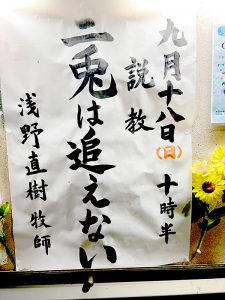 九月十八日(日) 十時半
説教
二兎は追えない
浅野直樹牧師